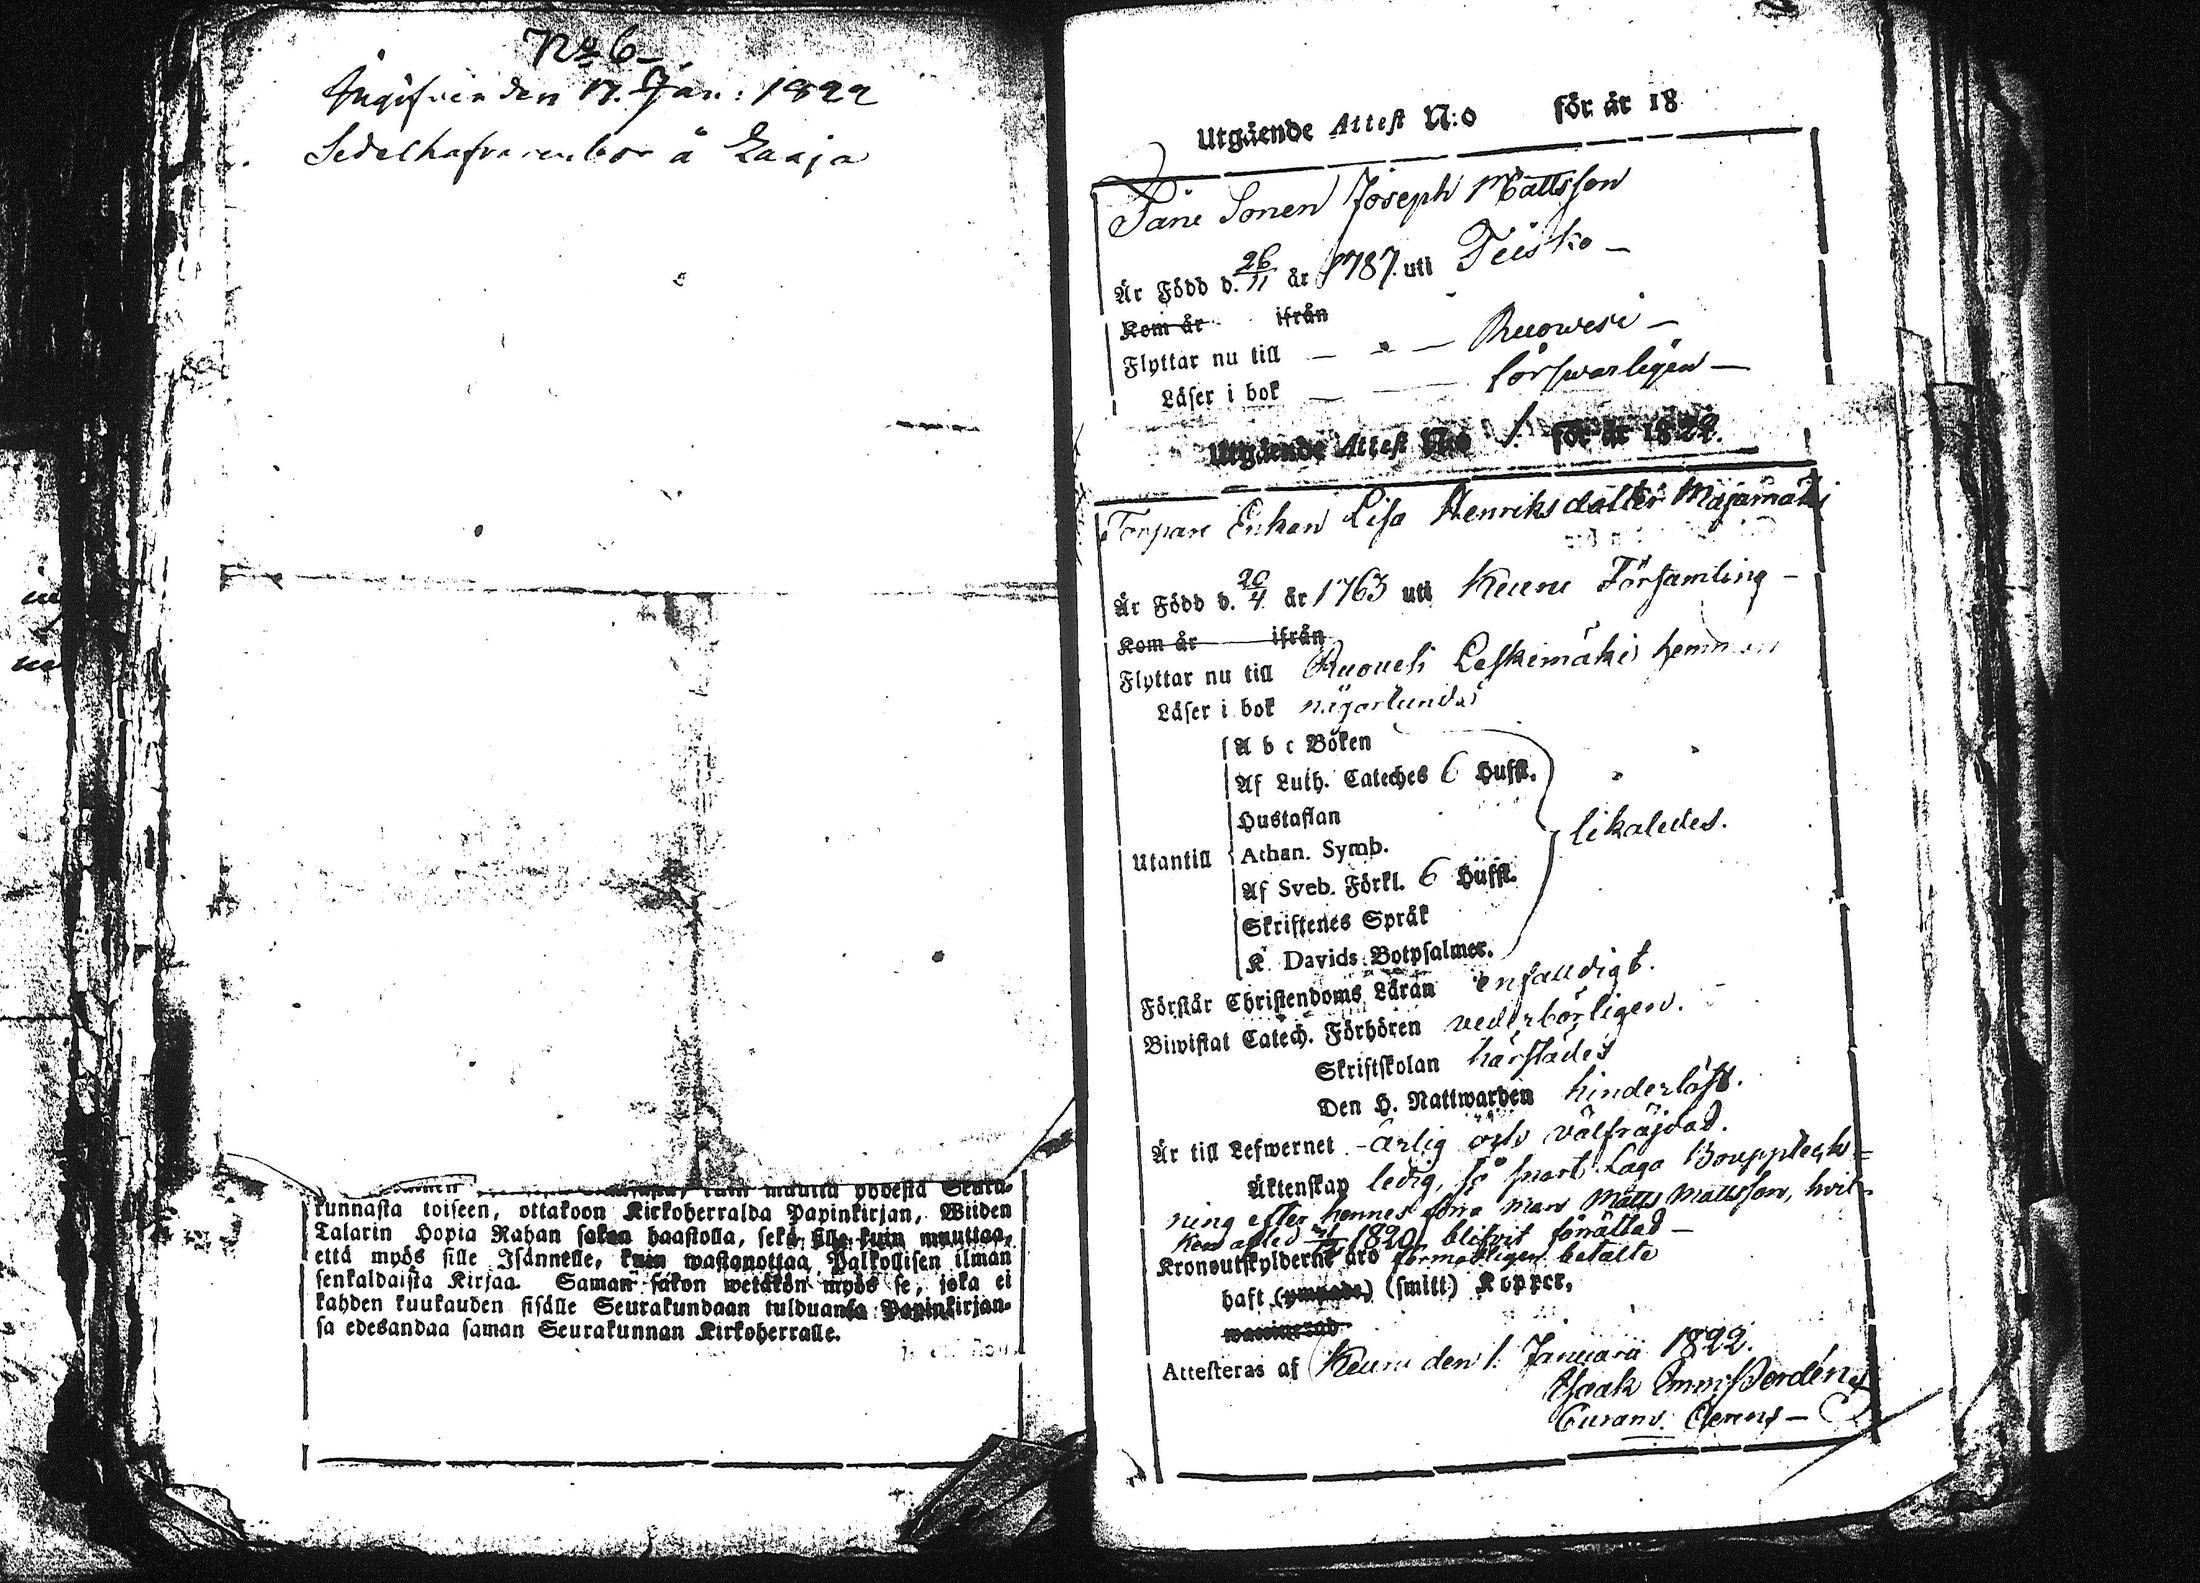 No 6
Ingifven den 17. Jan: 1822
Sedelhafvaren bor å Laaja
kunnasta toiseen, ottakoon Kirkoherralda Papinkirjan, Wiiden
Talarin Hopia Rahan sakon haastolla, sekä sille kuin muuttaa,
että myös sille Isännelle, kuin wastanottaa Palkollisen ilman
senkaldaista Kirjaa. Saman sakon wetäkön myös se, joka ei
kahden kuukauden sisälle Seurakundaan tulduansa Papinkirjan-
sa edesandaa saman Seurakunnan Kirkoherralle.
Utgående Attest N:o för år 18
Sonen Joseph Mattsson
Är Född d. 26/11 år 1787. uti Teisko —
Kom år ifrån
Flyttar nu till — — Ruowesi —
Läser i bok — försvarligen —
Utgående Attest N:o 1. för år 1822.
Torpare Enkan Lisa Henriksdotter Majamäki
Är Född d. 20/4 år 1763 uti Keuru Församling —
Kom år ifrån
Flyttar nu till Ruovesi Leskimäki hemman
Läser i bok någorlunda
A b c Boken
Af Luth. Cateches 6 Hufst.
Hustaflan
Utantill Athan. Symb. likaledes.
Af Sveb. Förkl. 6 Hufst.
Skriftenes Språk
K. Davids Botpsalmer.
Förstår Christendoms Läran enfaldigt.
Biwistat Catech. Förhören vederbörligen.
Skriftskolan härstädes
Den H. Nattwarden hinderlöst.
Är till Lefwernet ärlig och välfräjdad.
Äktenskap ledig, så snart Laga Boupptekn-
ning efter hennes förra man Matts Mattsson, hvil-
ken afled 1820, blifvit förrättad —
Kronoutskylderne äro förmodligen betalte
haft (ympade) (smitt) Kopper,
Attesteras af Keuru den 1. Januarii 1822.
Isaak